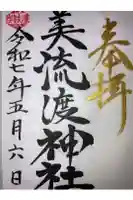 奉拝
美流渡神社
令和七年五月六日